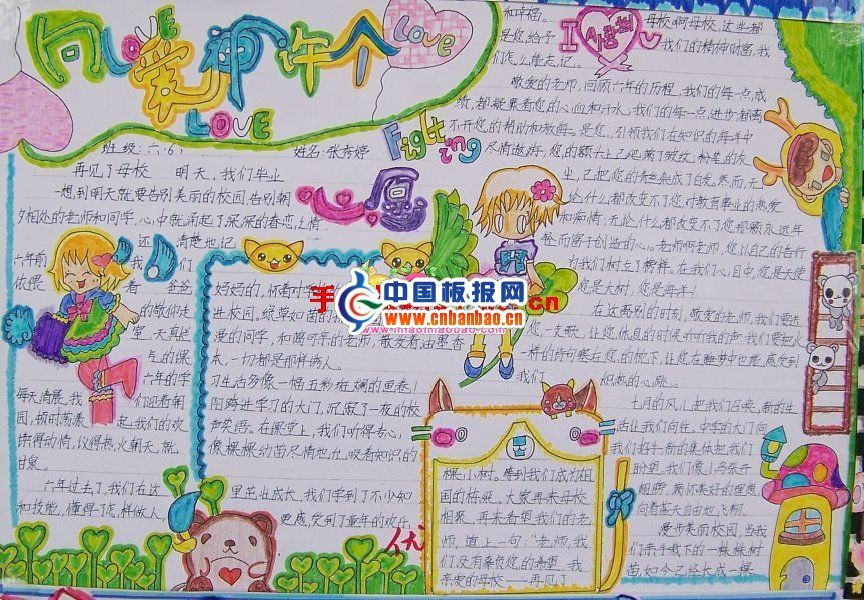 向爱神许个
LOVE
LOVE
LOVE
Fighting
I
班级:六(6) 姓名:张秀婷
再见了母校 明天,我们毕业
一想到明天就要告别美丽的校园,告别朝
夕相处的老师和同学,心中就涌起了深深的眷恋,
还清楚地记
六年前
依偎着爸爸
好好的,怀着
进校园,绿草如茵的
漫的同学,和蔼可亲的老师,散发着油墨香
本,一切都是那样诱人。
六年的学
习生活多像一幅五彩斑斓的画卷!
每天清晨,我们迎着朝
阳跨进学习的大门,沉寂了一夜的校
园,顿时荡漾起我们的欢
声笑语。在课堂上,我们听得专心,
议得热火朝天,就
像棵棵幼苗尽情地
吸着知识的
甘泉。
六年过去了,我们在这里茁壮成长,我们学到了不少知
和技能,懂得了怎样做人,更感受到了童年的欢乐
和幸福。
是您,给予
我们怎么能忘记。
母校啊母校,这些都
我们的精神财富,我
敬爱的老师,回顾六年的历程,我们的每一点成
绩,都凝聚着您的心血和汗水,我们的每一点进步,都离
不开您的帮助和教诲。是您,引领我们在知识的海洋中
尽情遨游。您的额头上已爬满了皱纹,粉笔的灰
尘,已把您的青丝染成了白发。然而,无
论什么都改变不了您对教育事业的热爱
和痴情;无论什么都改变不了您那颗永远年
轻而富于创造的心。老师啊老师,您以自己的言行
为我们树立了榜样。在我们心目中,您是天使
您是大树,您是海洋!
在这离别的时刻,敬爱的老师,我们要送
您一支歌,让您休息的时候听听我的声,我们要把火
一样的诗句塞在您的枕下,让您在睡梦中也能感受到
我们炽热的心跳。
七月的风儿把我们召唤,新的生
活让我们向往。中学的大门向
我们招手,新的集体把我们
盼望,我们像小鸟张开
翅膀,满怀美好的理想
向着蓝天自由地飞翔。
漫步美丽校园,当我
们亲手栽下的一棵棵树
苗,如今已经长成一棵
棵小树。等到我们成为祖
国的栋梁,大家再来母校
相聚,再来看望我们的老
师,道上一句:“老师,我
们没有辜负您的希望。我
亲爱的母校——再见了
中国板报网
www.cnbanbao.cn
www.miaomiaobao.com
手
cn